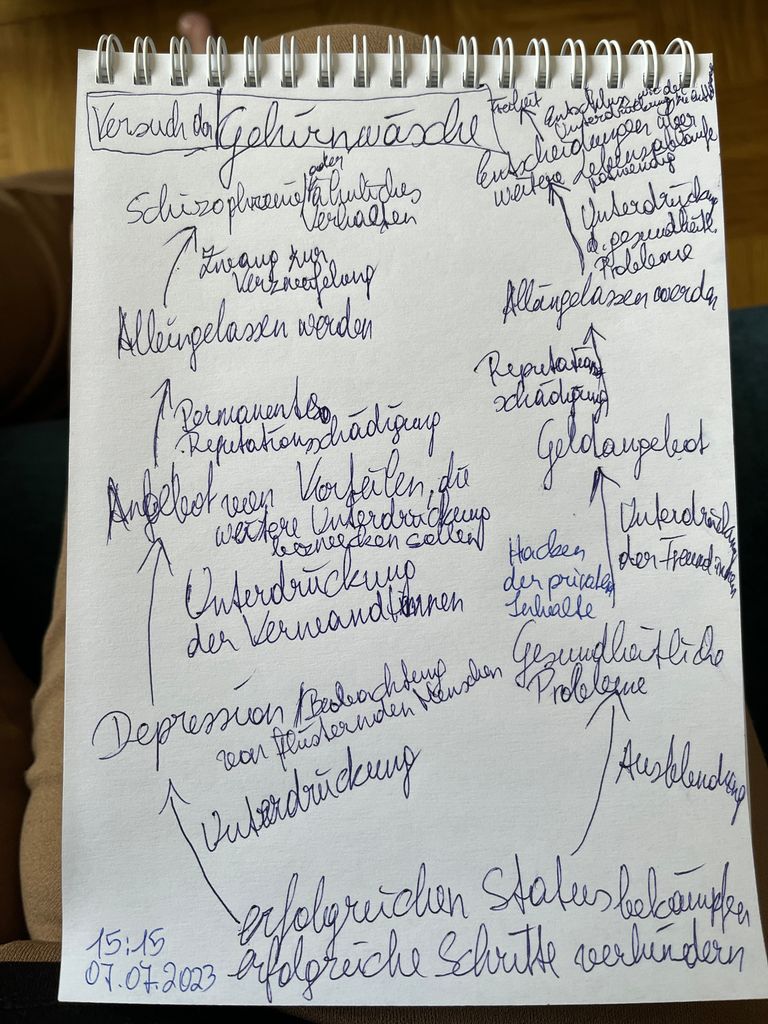 Versuch der Gehirnwäsche
Schizophrenie oder ähnliches
Verhalten
Zwang zur
Verzweifelung
Alleingelassen werden
Permanente
Reputationsschädigung
Angebot von Vorteilen, die
weitere Unterdrückung
bezwecken sollen
Unterdrückung
der Verwandtinnen
Depression / Beobachtung
von flüsternden Menschen
Unterdrückung
Freiheit
Entschluss
Entscheidungen über
weitere Lebensabläufe
notwendig
Unterdrückung
d. gesundheitl.
Probleme
Alleingelassen werden
Reputations
schädigung
Geldangebot
Unterdrückung
der Freundinnen
Hacken
der privaten
Inhalte
Gesundheitliche
Probleme
Ausblendung
erfolgreichen Status bekämpfen
erfolgreiche Schritte verhindern
15:15
07.07.2023